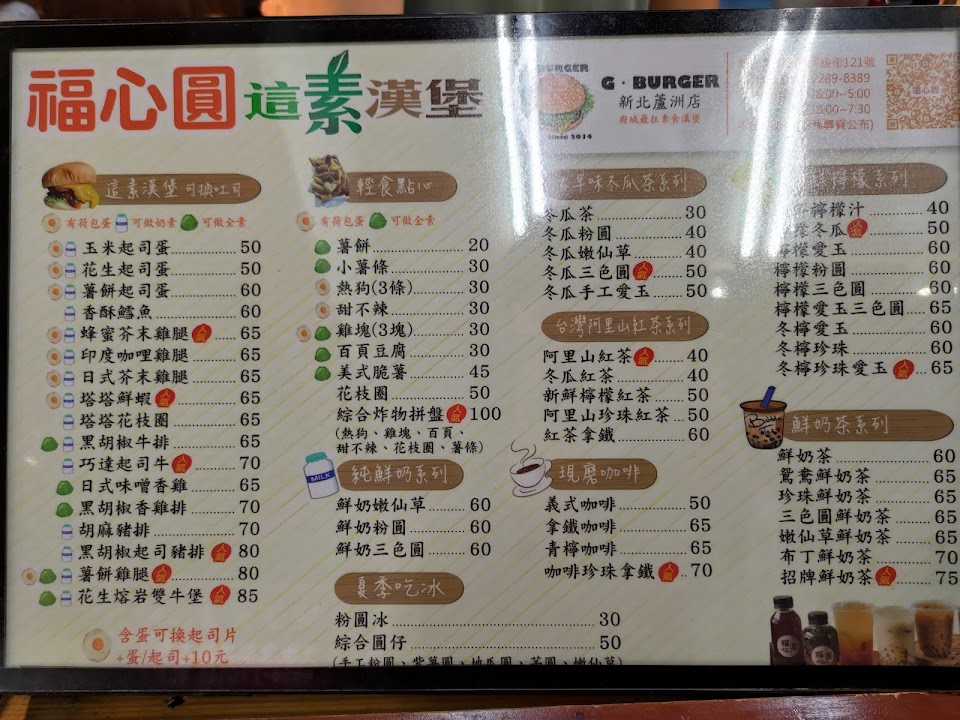 福心圓 這素漢堡
BURGER
Since 2014
G·BURGER
新北蘆洲店
府城最狂素食漢堡
街121號
2289-8389
18:00~5:00
8:00~7:30
福心圓
這素漢堡 可換吐司
有荷包蛋 可做奶素 可做全素
玉米起司蛋 50
花生起司蛋 50
薯餅起司蛋 60
香酥鱈魚 60
蜂蜜芥末雞腿 人氣 65
印度咖哩雞腿 65
日式芥末雞腿 65
塔塔鮮蝦 人氣 65
塔塔花枝圈 65
黑胡椒牛排 65
巧達起司牛 人氣 70
日式味噌香雞 65
黑胡椒香雞排 70
胡麻豬排 70
黑胡椒起司豬排 人氣 80
薯餅雞腿 人氣 80
花生熔岩雙牛堡 人氣 85
含蛋可換起司片
+蛋/起司+10元
輕食點心
有荷包蛋 可做全素
薯餅 20
小薯條 30
熱狗(3條) 30
甜不辣 30
雞塊(3塊) 30
百頁豆腐 30
美式脆薯 45
花枝圈 50
綜合炸物拼盤 人氣 100
(熱狗、雞塊、百頁、
甜不辣、花枝圈、薯條)
MILK
純鮮奶系列
鮮奶嫩仙草 60
鮮奶粉圓 60
鮮奶三色圓 60
夏季吃冰
粉圓冰 30
綜合圓仔 50
(手工粉圓、紫薯圓、地瓜圓、芋圓、嫩仙草)
早味冬瓜茶系列
冬瓜茶 30
冬瓜粉圓 40
冬瓜嫩仙草 40
冬瓜三色圓 人氣 50
冬瓜手工愛玉 50
台灣阿里山紅茶系列
阿里山紅茶 人氣 40
冬瓜紅茶 40
新鮮檸檬紅茶 50
阿里山珍珠紅茶 50
紅茶拿鐵 60
現磨咖啡
義式咖啡 50
拿鐵咖啡 65
青檸咖啡 65
咖啡珍珠拿鐵 人氣 70
檸檬系列
檸檬汁 40
冬瓜 人氣 50
檸檬愛玉 60
檸檬粉圓 60
檸檬三色圓 60
檸檬愛玉三色圓 65
冬檸愛玉 60
冬檸珍珠 60
冬檸珍珠愛玉 人氣 65
鮮奶茶系列
鮮奶茶 60
鴛鴦鮮奶茶 65
珍珠鮮奶茶 65
三色圓鮮奶茶 65
嫩仙草鮮奶茶 65
布丁鮮奶茶 70
招牌鮮奶茶 人氣 75